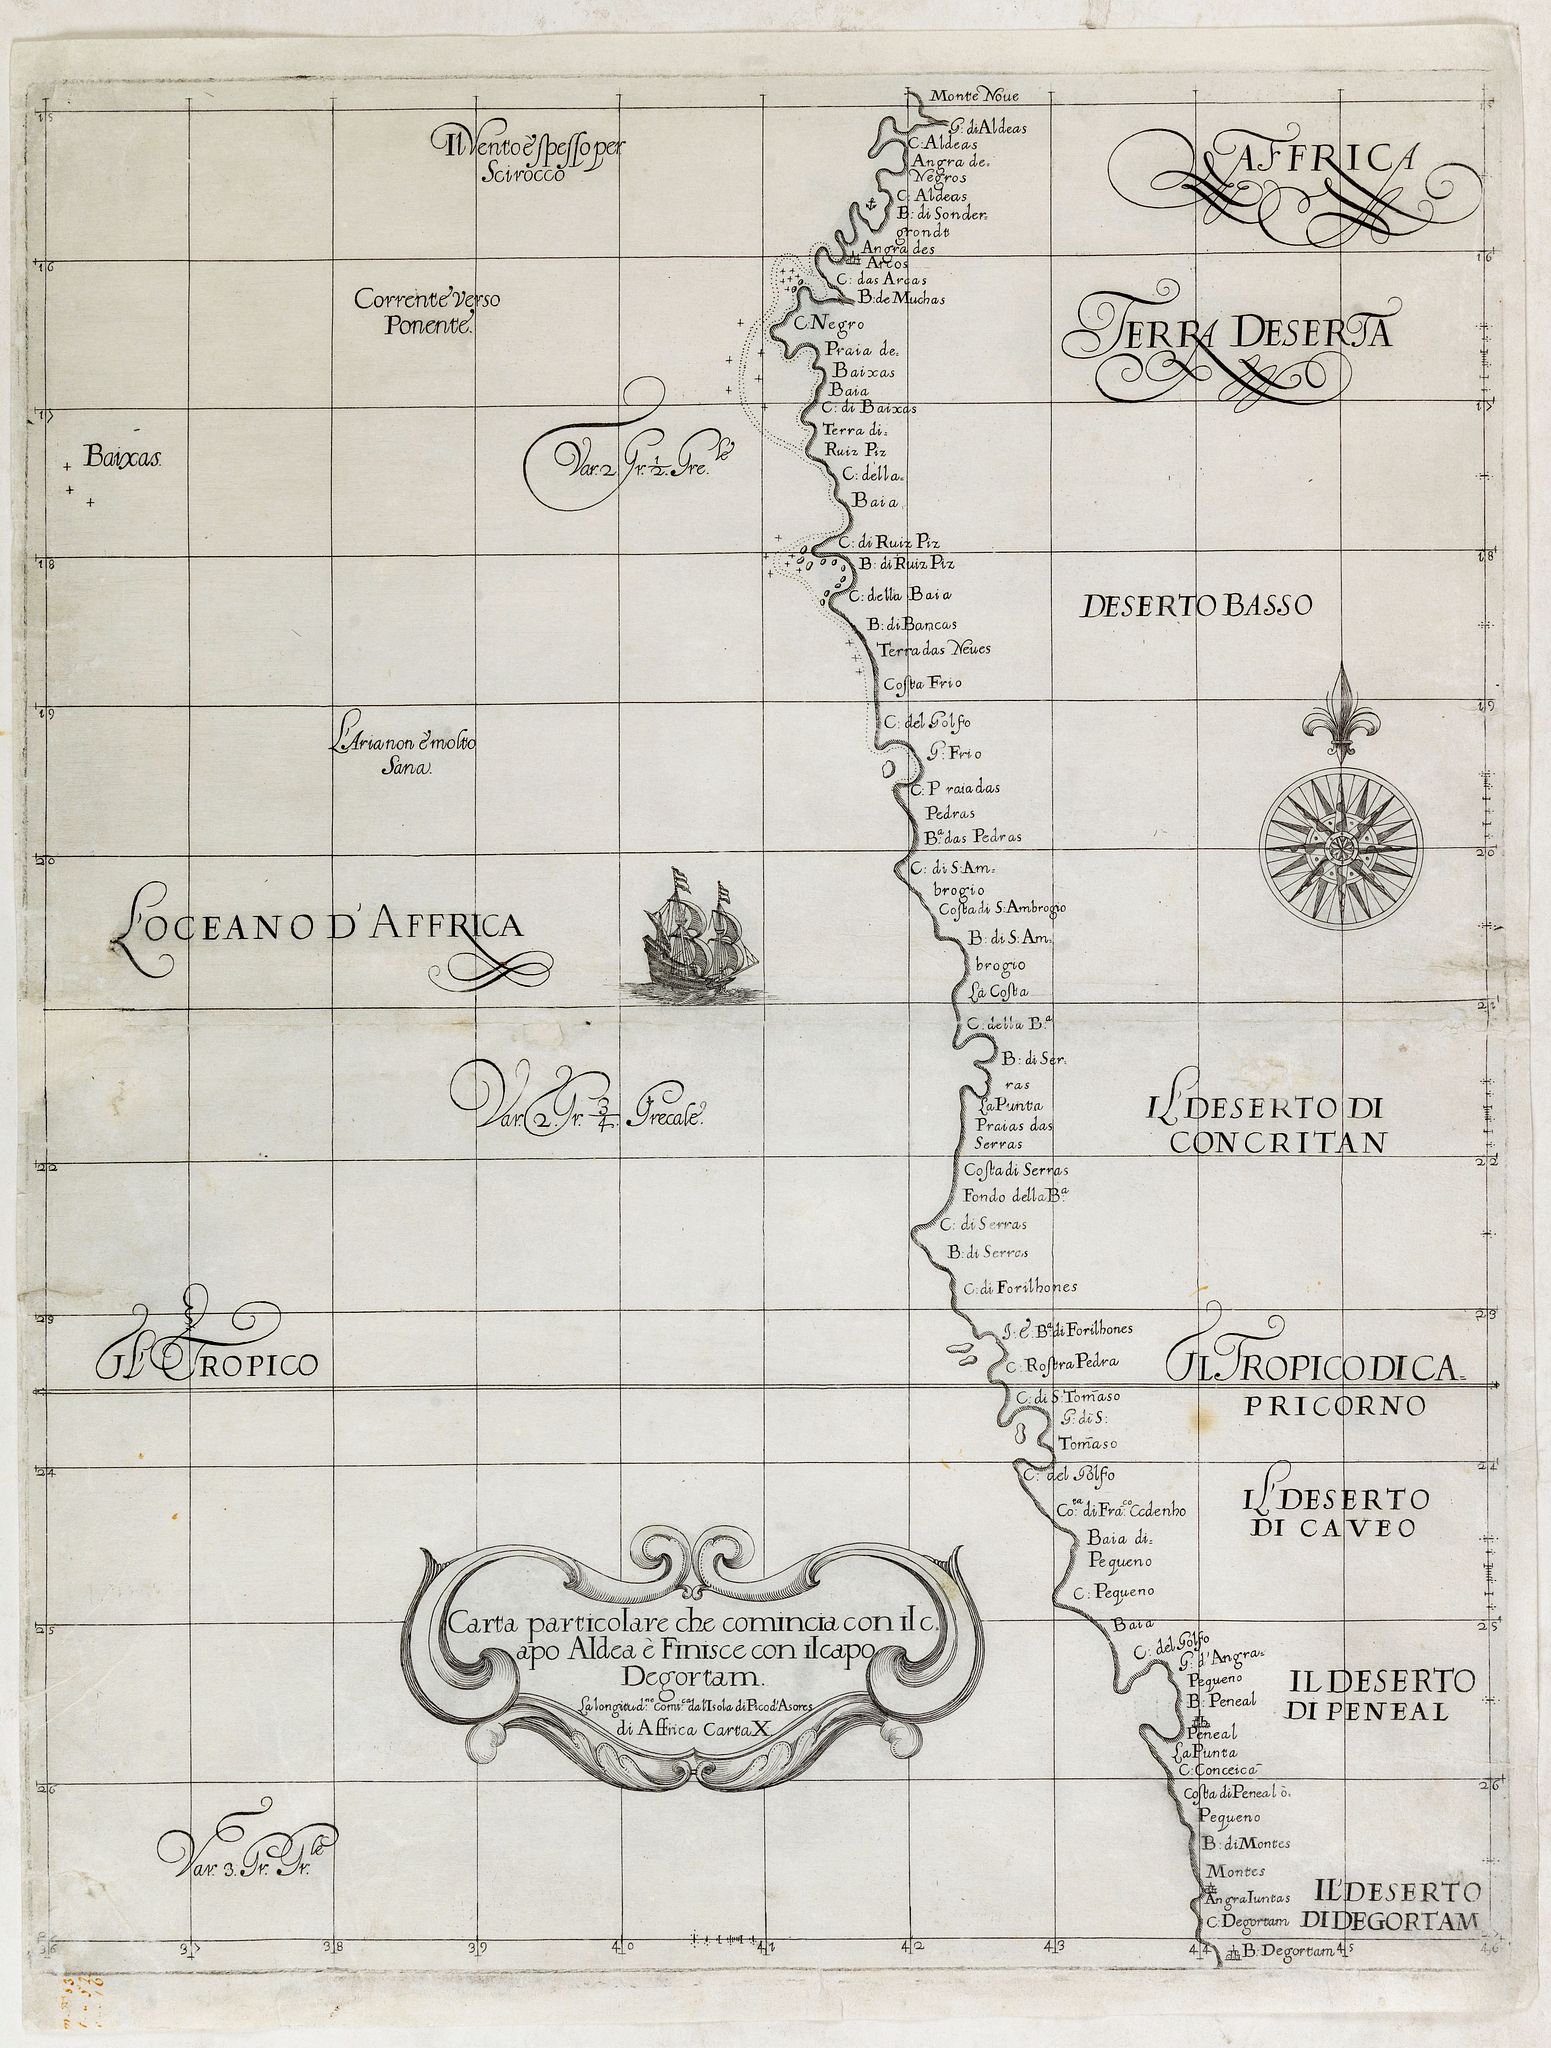 Monte Noue
G: di Aldeas
C: Aldeas
Angra de:
Negros
C: Aldeas
B: di Sonder:
grondt
Angra des
Arcos
C: das Areas
B: de Muchas
C: Negro
Praia de:
Baixas
Baia
C: di Baixas
Terra di:
Ruiz Piz
C: della:
Baia
C: di Ruiz Piz
B: di Ruiz Piz
C: della Baia
B: di Bancas
Terra das Neues
Costa Frio
C: del Golfo
G: Frio
C: Praia das
Pedras
B.ª das Pedras
C: di S: Am=
brogio
Costa di S: Ambrogio
B: di S: Am:
brogio
La Costa
C: della B.ª
B: di Ser:
ras
La Punta
Praias das
Serras
Costa di Serras
Fondo della B.ª
C: di Serras
B: di Serras
C: di Forilhones
I: è B.ª di Forilhones
C: Rostra Pedra
C: di S: Tom̃aso
G: di S:
Tom̃aso
C: del Golfo
Co.ta di Fra.co Ccdenho
Baia di:
Pequeno
C: Pequeno
Baia
C: del Golfo
G: d'Angra:
Pequeno
B: Peneal
Peneal
La Punta
C: Conceica~
Costa di Peneal ò.
Pequeno
B: di Montes
Montes
Angra Iuntas
C: Degortam
B: Degortam
Il Vento è spesso per
Scirocco
Corrente verso
Ponente.
Var. 2 Gr. ½. Gre.le
Baixas.
L'Aria non è molto
Sana.
L'OCEANO D'AFFRICA
Var. 2. Gr. ¾ Grecale.
IL TROPICO
Var. 3. Gr. Gr.le
AFFRICA
TERRA DESERTA
DESERTO BASSO
IL DESERTO DI
CONCRITAN
IL TROPICO DI CA=
PRICORNO
IL DESERTO
DI CAVEO
IL DESERTO
DI PENEAL
IL DESERTO
DI DEGORTAM
Carta particolare che comincia con il c.
apo Aldea è Finisce con il capo
Degortam.
La longitud.ne Comi.ca da l'Isola di Pico d'Asores
di Affrica Carta X
15
16
17
18
19
20
21
22
23
24
25
26
15
16
17
18
19
20
21
22
23
24
25
26
36
37
38
39
40
41
42
43
44
45
46